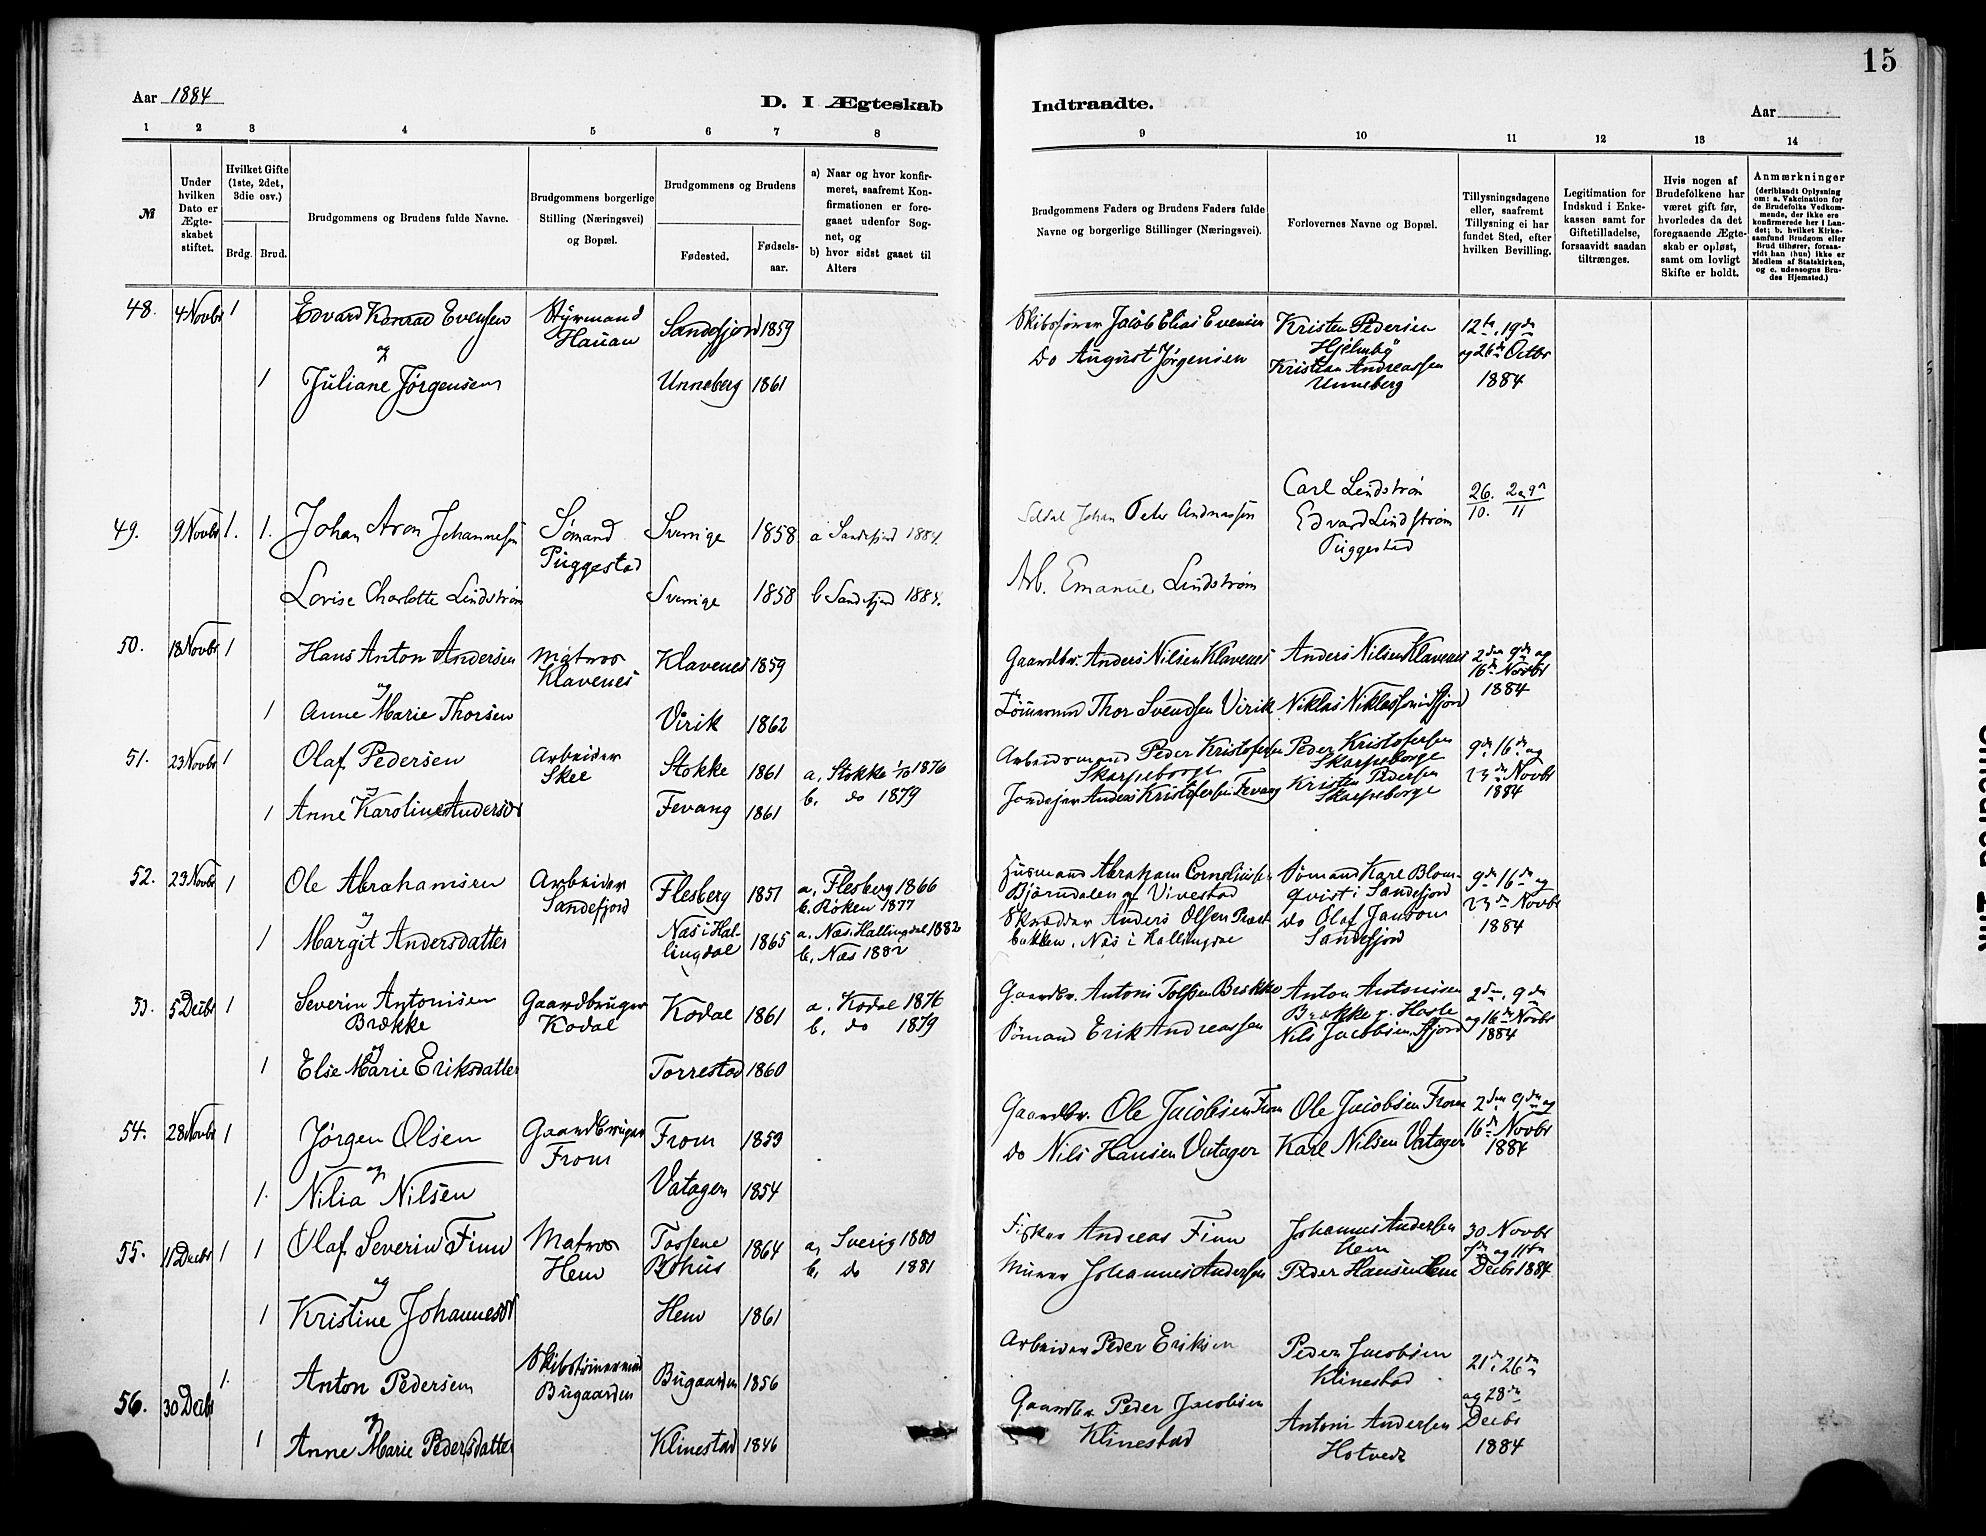 15
Aar 1884
D. I Ægteskab
Indtraadte.
Aar
1 2 3 4 5 6 7 8
9 10 11 12 13 14
№
Under hvilken Dato er Ægte-skabet stiftet.
Hvilket Gifte (1ste, 2det, 3die osv.)
Brdg. Brud.
Brudgommens og Brudens fulde Navne.
Brudgommens borgerlige Stilling (Næringsvei) og Bopæl.
Brudgommens og Brudens
Fødested. Fødsels-aar.
a) Naar og hvor konfir-meret, saafremt Kon-firmationen er fore-gaaet udenfor Sog-net, og
b) hvor sidst gaaet til Alters
Brudgommens Faders og Brudens Faders fulde Navne og borgerlige Stillinger (Næringsvei).
Forlovernes Navne og Bopæl.
Tillysningsdagene eller, saafremt Tillysning ei har fundet Sted, efter hvilken Bevilling.
Legitimation for Indskud i Enke-kassen samt for Giftetilladelse, forsaavidt saadan tiltrænges.
Hvis nogen af Brudefolkene har været gift før, hvorledes da det foregaaende Ægte-skab er opløst, samt om lovligt Skifte er holdt.
Anmærkninger
(deriblandt Oplysning om: a. Vakcination for de Brudefolks Vedkom-mende, der ikke ere konfirmerede her i Lan-det; b. hvilket Kirke-samfund Brudgom eller Brud tilhører, forsaa-vidt han (hun) ikke er Medlem af Statskirken, og c. udensogns Bru-des Hjemsted.)
48. 4 Novbr 1 Edvard Konrad Evensen Styrmand Hauan Sandefjord 1859 Skibsfører Jacob Elias Evensen Kristen Pedersen Hjelmby 12te, 19de og 26de Octbr 1884
og
1 Juliane Jørgensen Unneberg 1861 Do August Jørgensen Kristian Andreassen Unneberg
49. 9 Novbr 1. 1. Johan Aron Johannesen Sømand Puggestad Sverrige 1858 a Sandefjord 1884. Johan Peter Andreassen Carl Lindstrøm 26/10. 2 9/11
Edvard Lindstrøm Puggestad
Lovise Charlotte Lindstrøm Sverrige 1858 b Sandefjord 1884. Arb. Emanuel Lindstrøm
50. 18 Novbr 1 Hans Anton Andersen Matros Klavenes Klavenes 1859 Gaardbr. Anders Nilsen Klavenes Anders Nilsen Klavenes 2den 9de og 16de Novbr 1884
og
1 Anne Marie Thorsen Virik 1862 Tømmermd Thor Svendsen Virik Niklas Niklassen Sfjord
51. 23 Novbr 1 Olaf Pedersen Arbeider Skee Stokke 1861 a, Stokke 1/10 1876 b, do 1879 Arbeidsmand Peder Kristofersen Skarpeborge Peder Kristofersen Skarpeborge 9de 16de og 23de Novbr 1884
og
1 Anne Karoline Andersdr Fevang 1861 Jordejer Anders Kristofersen Fevang Kristen Pedersen Skarpeborge
52. 23 Novbr 1 Ole Abrahamsen Arbeider Sandefjord Flesberg 1851 a, Flesberg 1866 b. Røken 1877 Husmand Abraham Corneliusen Bjørndalen af Vivestad Sømand Karl Blomqvist i Sandefjord 9de 16de og 23de Novbr 1884
og
1 Margit Andersdatter Næs i Hallingdal 1865 a. Næs. Hallingdal 1882 b, Næs 1882 Skrædder Anders Olsen Præstbakken, Næs i Hallingdal do Olaf Sandefjord
53. 5 Decbr 1 Severin Antonisen Brække Gaardbruger Kodal Kodal 1861 a. Kodal 1876 b, do 1879 Gaardbr. Antoni Brække Anton Antonisen Brække p. Hasle 2den, 9de og 16de Novbr 1884
og
1 Else Marie Eriksdatter Torrestad 1860 Sømand Erik Andreassen Nils Jacobsen, Sfjord
54. 28 Novbr 1 Jørgen Olsen Gaardbruger From From 1853 Gaardbr. Ole Jacobsen From Ole Jacobsen From 2den 9de og 16de Novbr 1884
og
1. Nilia Nilsen Vatager 1854 Do Nils Hansen Vatager Karl Nilsen Vatager
55. 11 Decbr 1 1 Olaf Severin Finn Matros Hem Tossene Bohus 1864 a, Sverig 1880 b, do 1881 Fisker Andreas Finn Johannes Andersen Hem 30 Novbr 7de og 11te Decbr 1884
og
1 Kristine Johannesdr Hem 1861 Murer Johannes Andersen Peder Hansen Hem
56. 30 Decbr 1. Anton Pedersen Skibstømmermand Bugaarden Bugaarden 1856 Arbeider Peder Eriksen Peder Jacobsen Klinestad 21de, 26de og 28de Decbr 1884
og
1 Anne Marie Pedersdatter Klinestad 1846 Gaardbr. Peder Jacobsen Klinestad Antoni Andersen Hotvedt